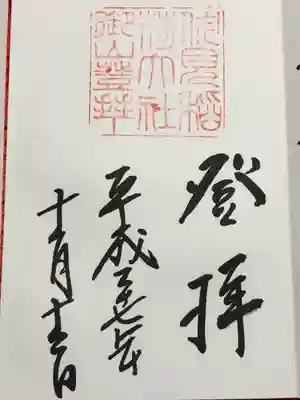 伏見稲
荷大社
御山登拝
登拝
平成二十七年
十月十日